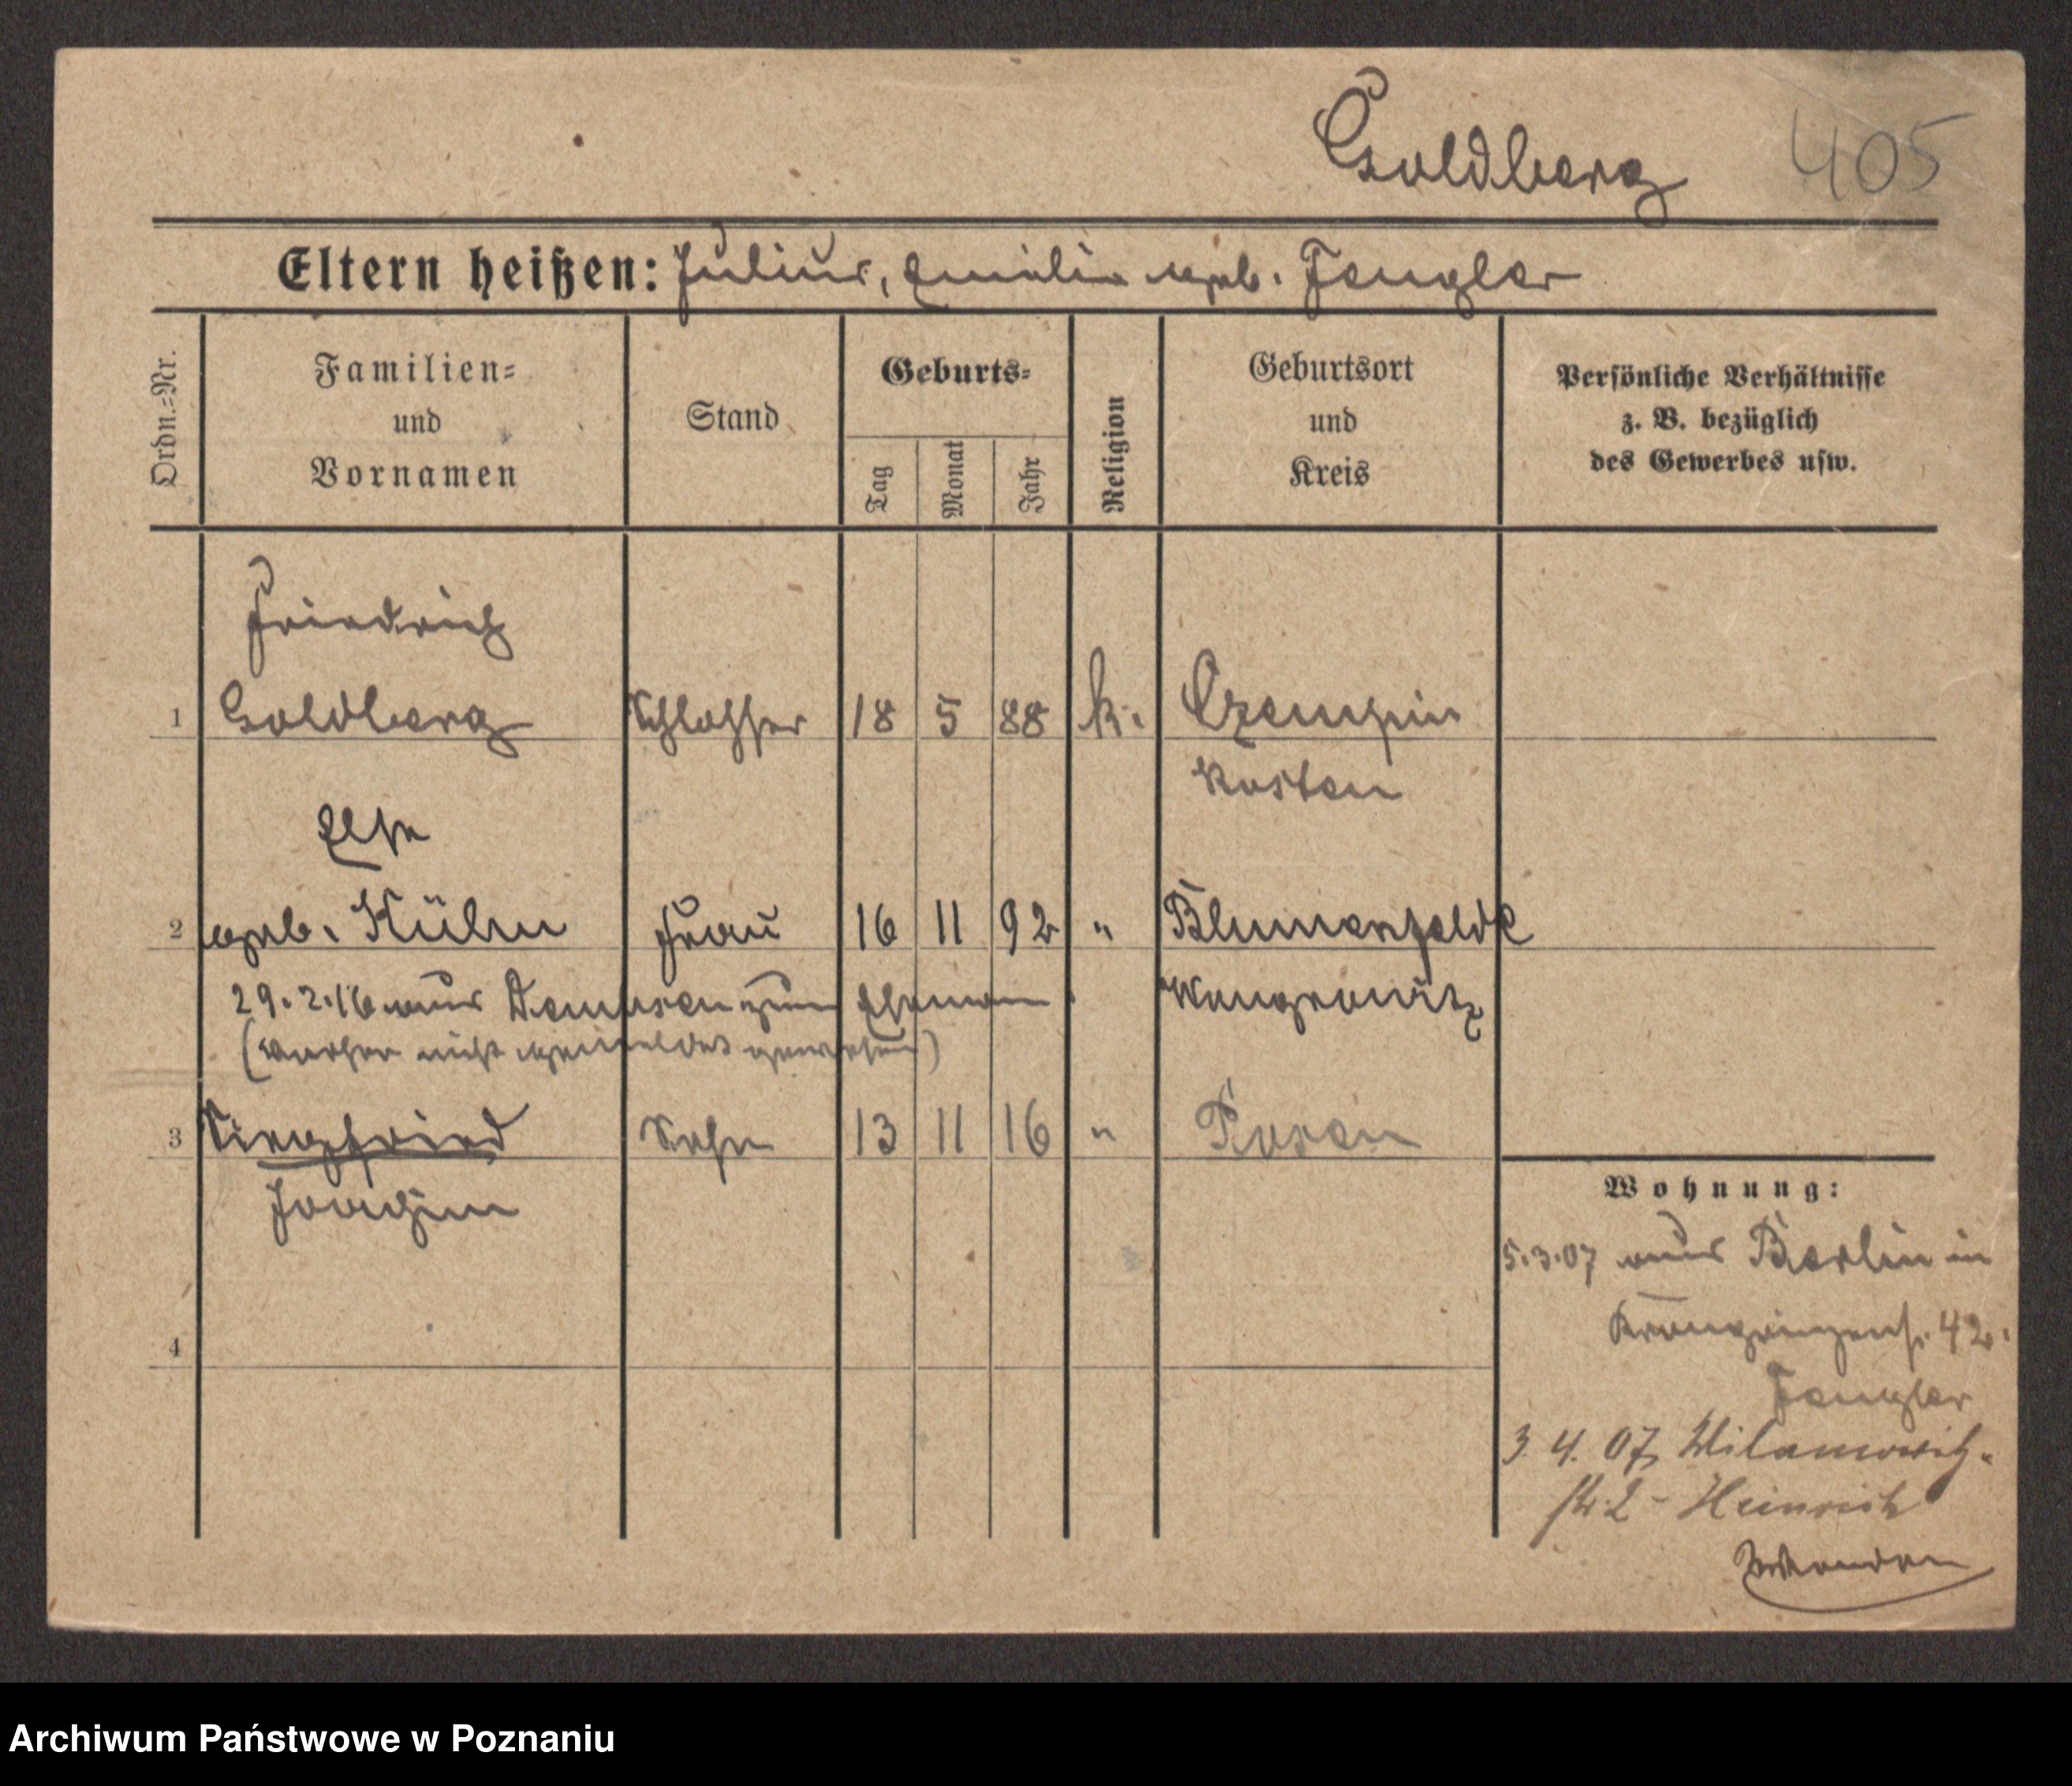 Goldberg 405
Eltern heißen: Julius, Emilie geb. Fengler
Ordn.=Nr.
Familien=
und
Vornamen
Stand
Geburts=
Tag
Monat
Jahr
Religion
Geburtsort
und
Kreis
Persönliche Verhältnisse
z. B. bezüglich
des Gewerbes usw.
Friedrich
1 Goldberg Schlosser 18 5 88 k. Czempin
Kosten
Else
2 geb. Kühn Frau 16 11 92 " Blumenfelde
29.2.16 aus Demsen zum Ehemann Wongrowitz
(vorher nicht gemeldet gewesen)
3 Siegfried Sohn 13 11 16 " Posen
Joachim
4
Wohnung:
5.3.07 aus Berlin in
Kronprinzenstr. 42.
Fengler
3. 4. 07, Wilamowitz-
str. 2 - Heinrich
Archiwum Państwowe w Poznaniu